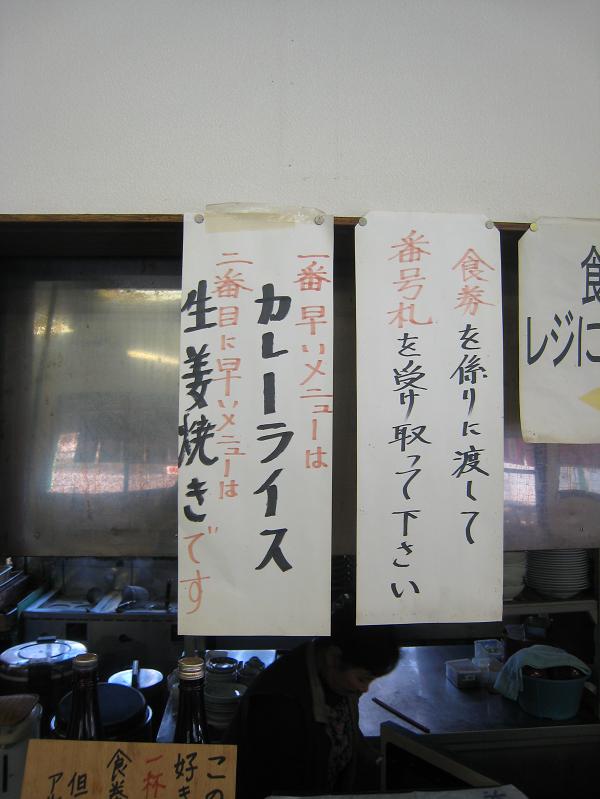 食
レジに
食券を係りに渡して
番号札を受け取って下さい
一番早いメニューは
カレーライス
二番目に早いメニューは
生姜焼きです
この
好き
一杯
食券
但